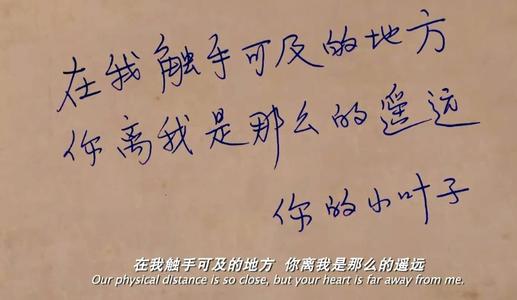 在我触手可及的地方
你离我是那么的遥远
你的小叶子
在我触手可及的地方 你离我是那么的遥远
Our physical distance is so close, but your heart is far away from me.